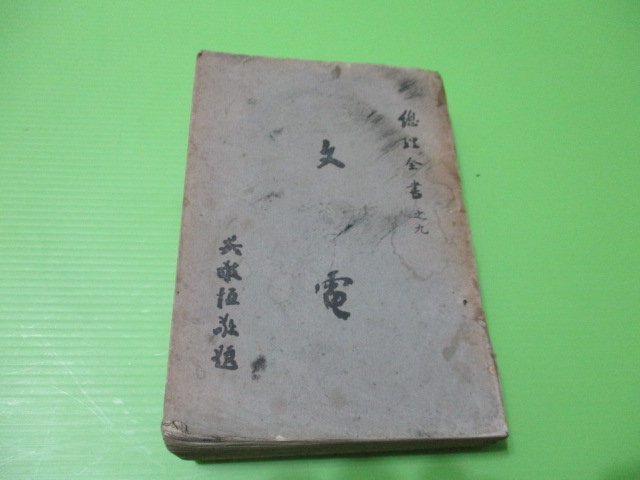 總理全書之九
文電
吳敬恆敬題